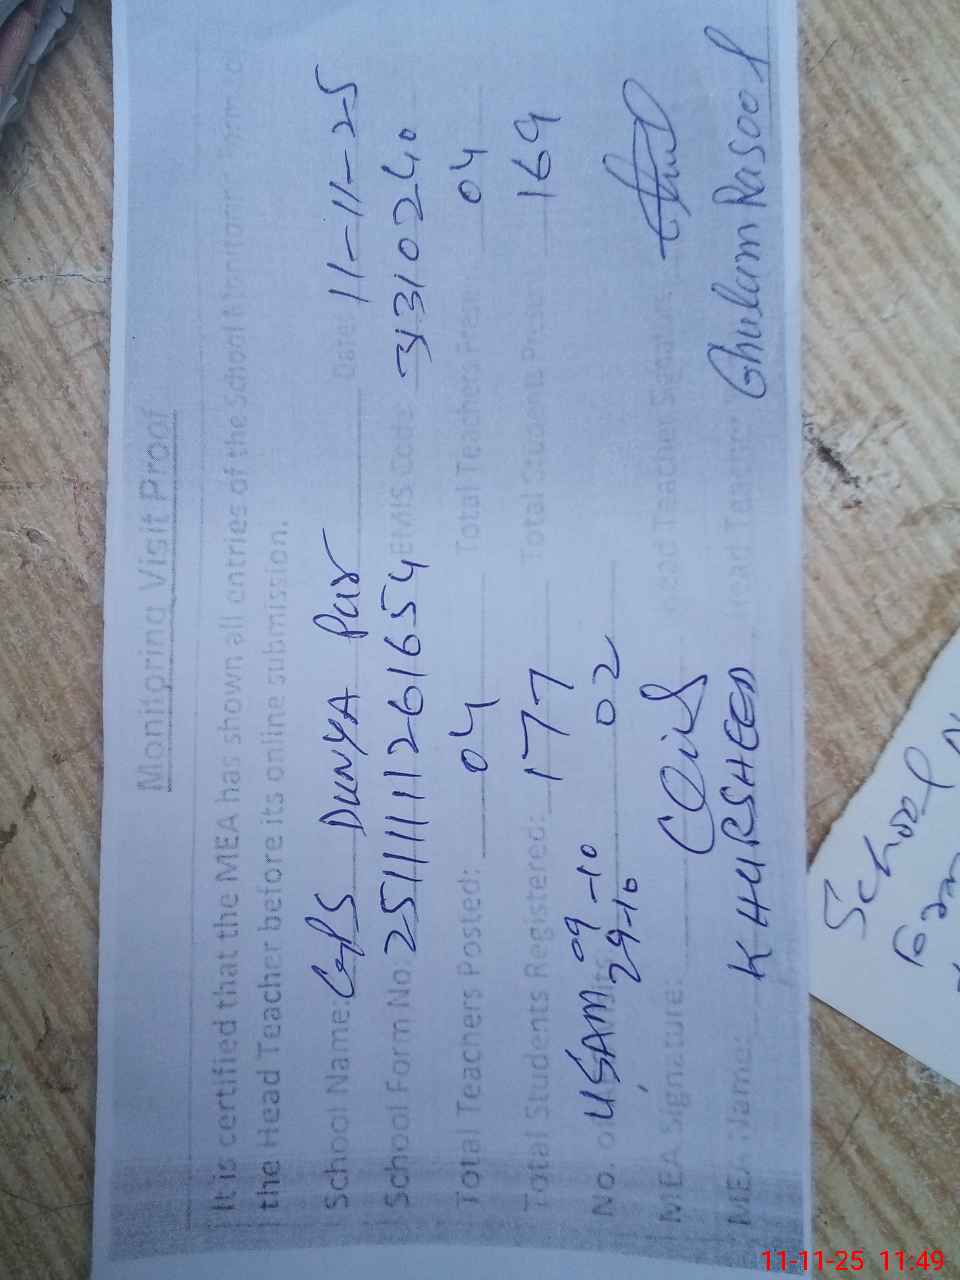 Monitoring Visit Proof
It is certified that the MEA has shown all entries of the School Monitoring Form to
the Head Teacher before its online submission.
School Name: GPS DUNYA Pur Date: 11-11-25
School Form No: 2511111261654 EMIS Code: 31310240
Total Teachers Posted: 04 Total Teachers Present 04
Total Students Registered: 177 Total Students Present 169
No. of 02
USAM 09-10
29-10
MEA Signature: Head Teacher Signature
MEA Name: KHURSHEED Head Teacher Ghulam Rasool
School
11-11-25 11:49